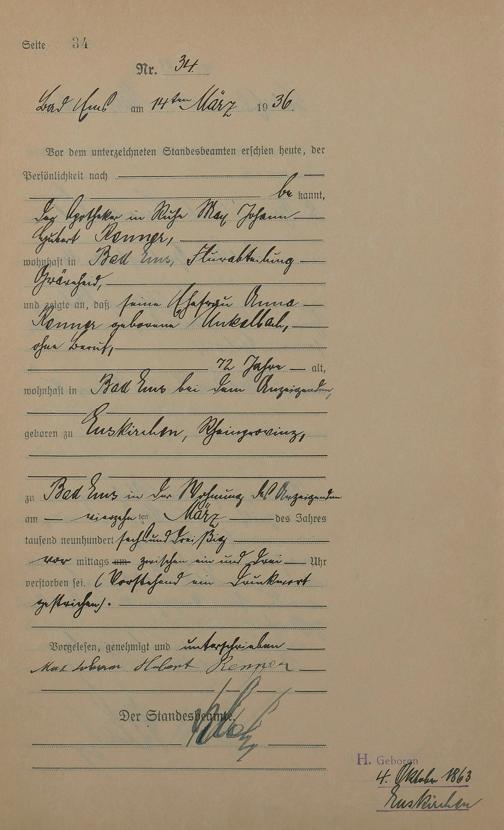 Seite 34
Nr. 34
Bad Ems am 14ten März 1936.
Vor dem unterzeichneten Standesbeamten erschien heute, der
Persönlichkeit nach
be kannt,
der Apotheker in Ruhe Max Johann
Hubert Renner,
wohnhaft in Bad Ems, Flurabteilung
und zeigte an, daß seine Ehefrau Anna
Renner geborene Unkelbach,
ohne Beruf,
72 Jahre alt,
wohnhaft in Bad Ems bei dem Anzeigenden,
geboren zu Euskirchen, Rheinprovinz,
zu Bad Ems in der Wohnung des Anzeigenden
am vierzehnten März des Jahres
tausend neunhundert sechsunddreißig
vor mittags um zwischen ein und drei Uhr
verstorben sei. (Vorstehend ein Druckwort
gestrichen).
Vorgelesen, genehmigt und unterschrieben
Max Johann Hubert Renner
Der Standesbeamte.
H. Geboren
4. Oktober 1863
Euskirchen